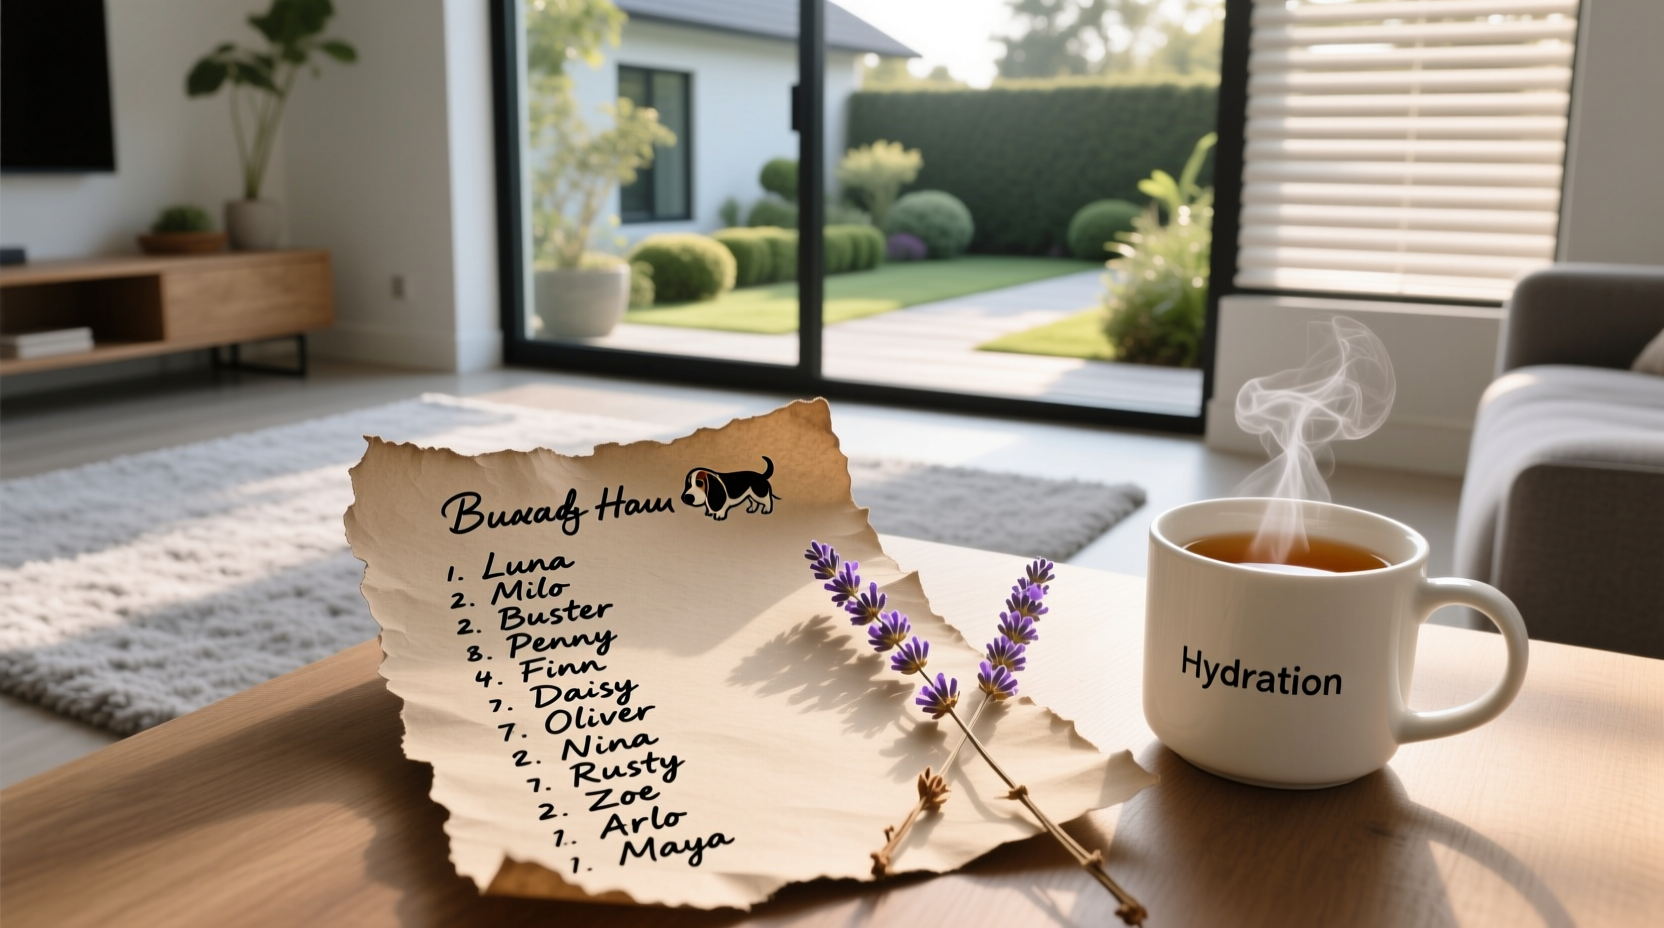 Buxady Hau
1. Luna
2. Milo
2. Buster
8. Penny
4. Finn
7. Daisy
7. Oliver
2. Nina
7. Rusty
2. Zoe
1. Arlo
1. Maya
Hydration